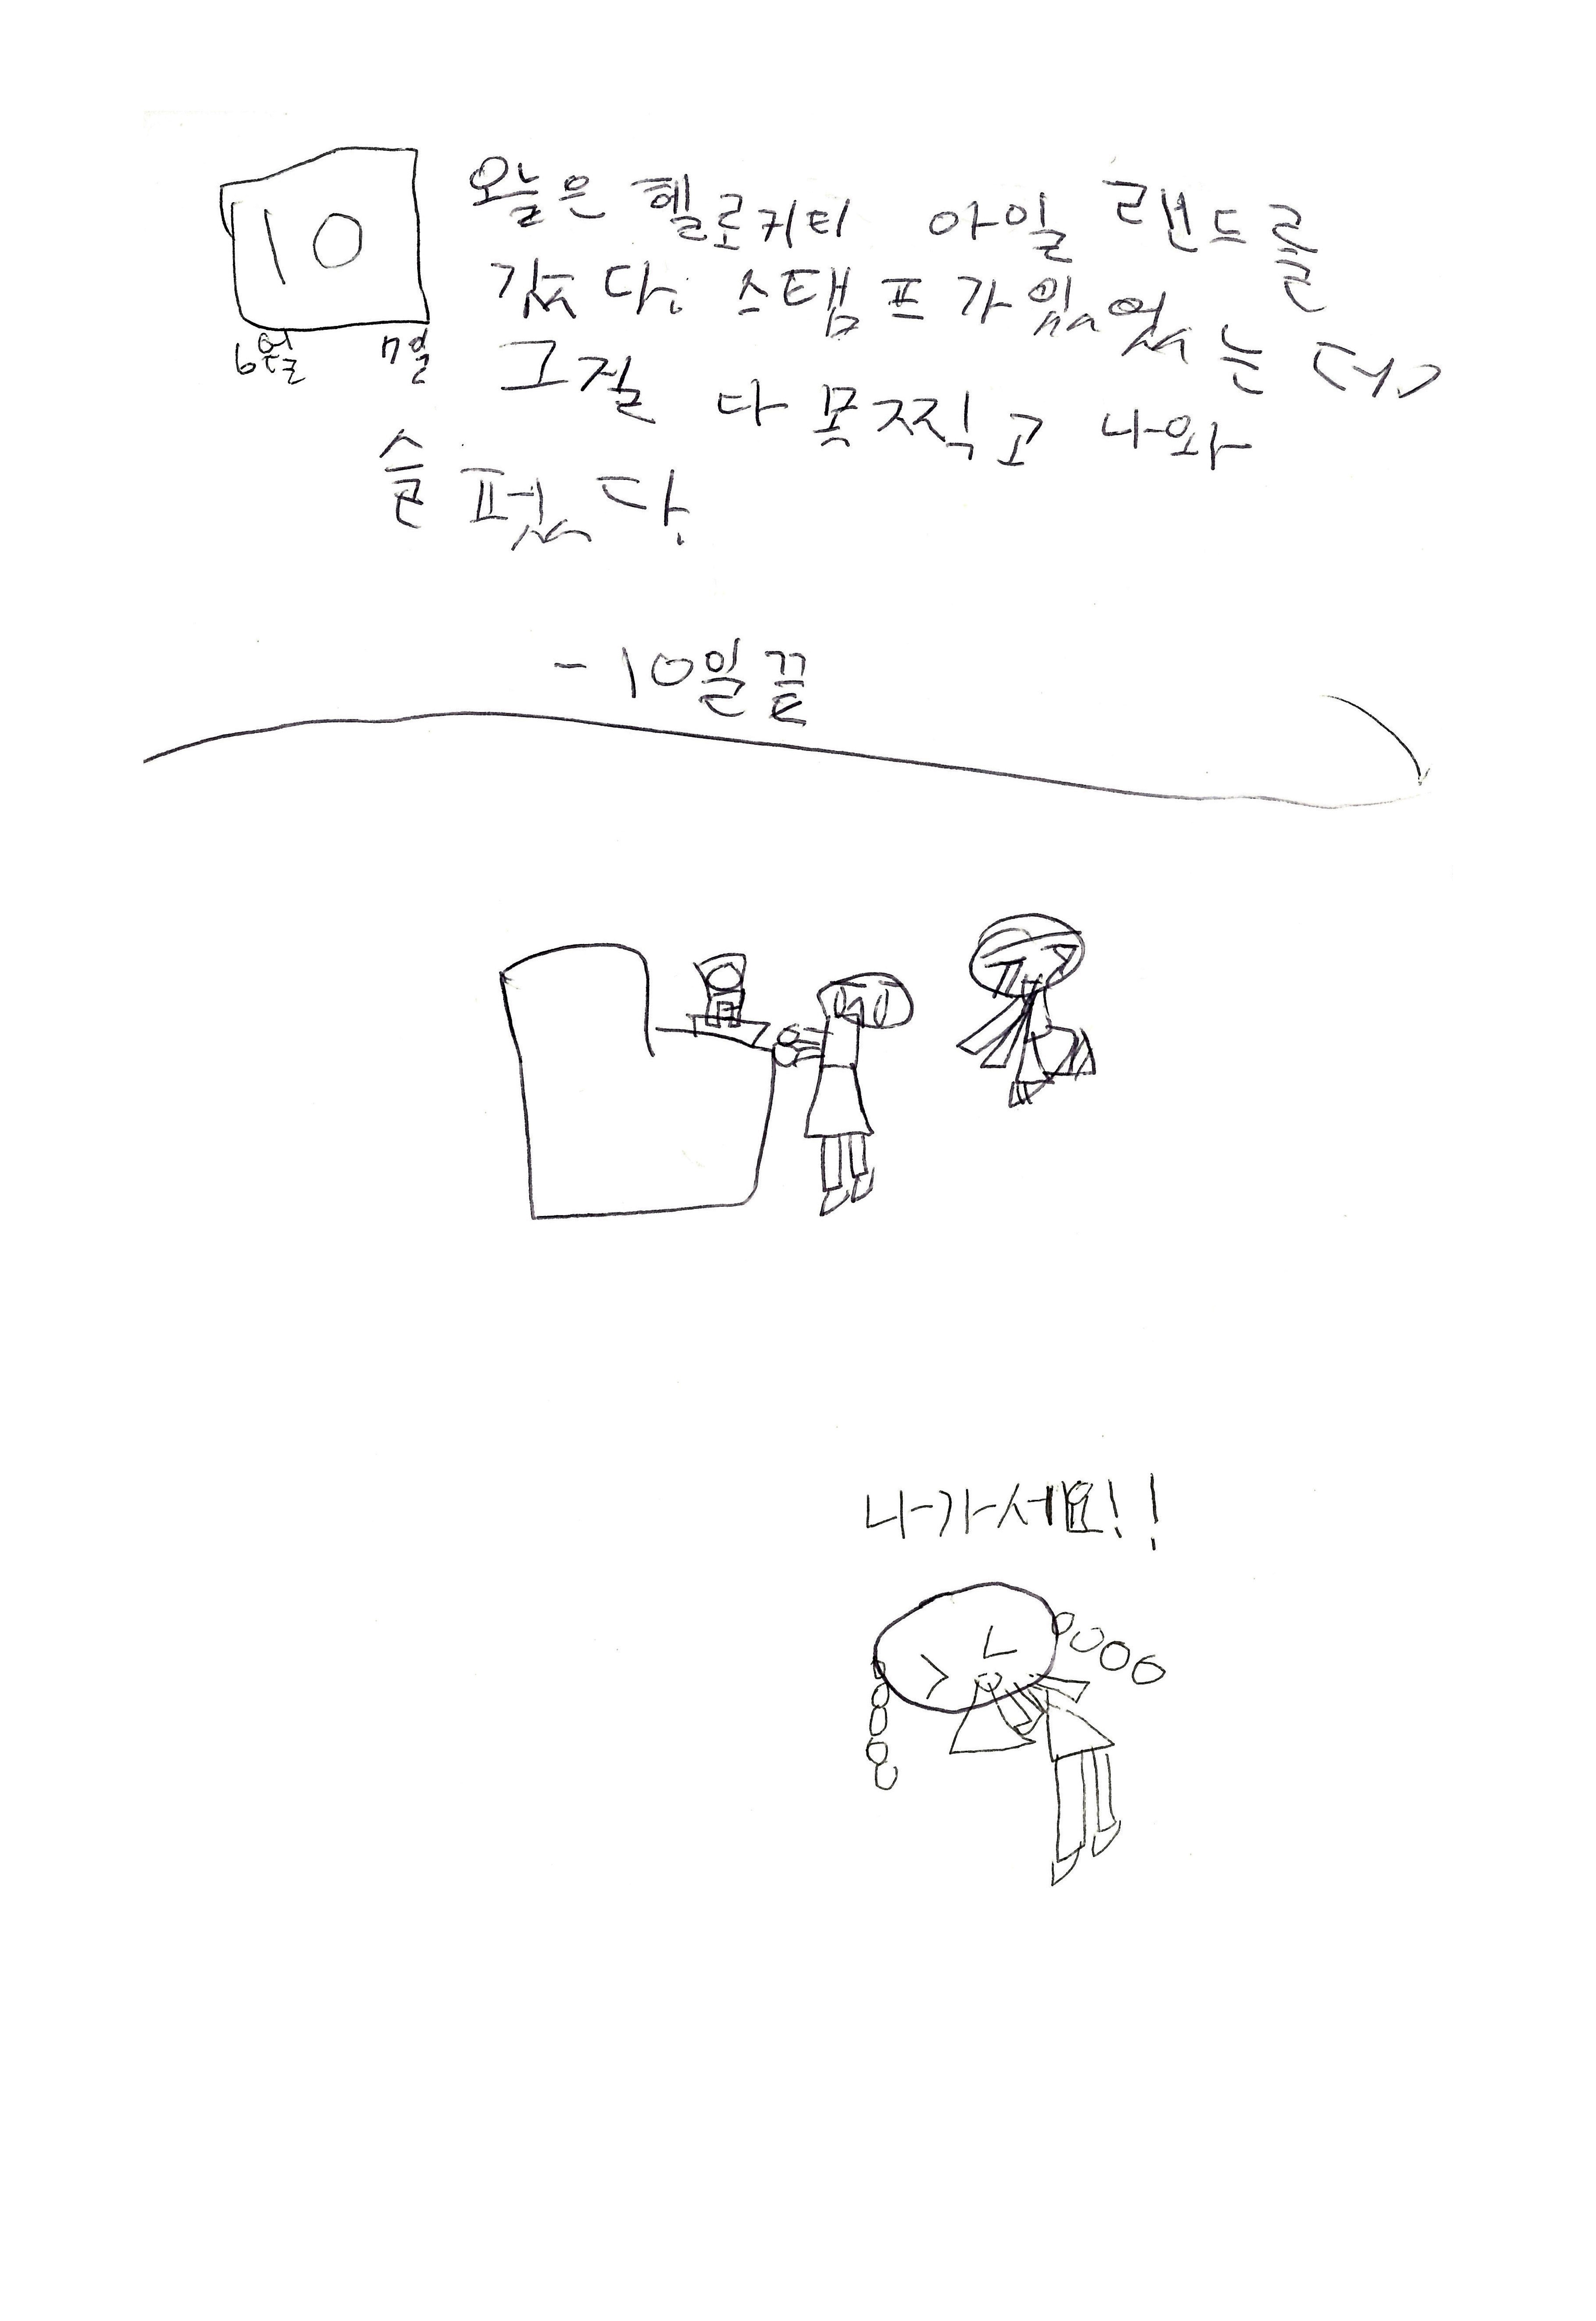 10
6월 7일
오늘은 헬로키티 아일 랜드를
갔다. 스탬프가 있었는데
그걸 다 못찍고 나와
슬펐다.
-10일끝
나가세요!!